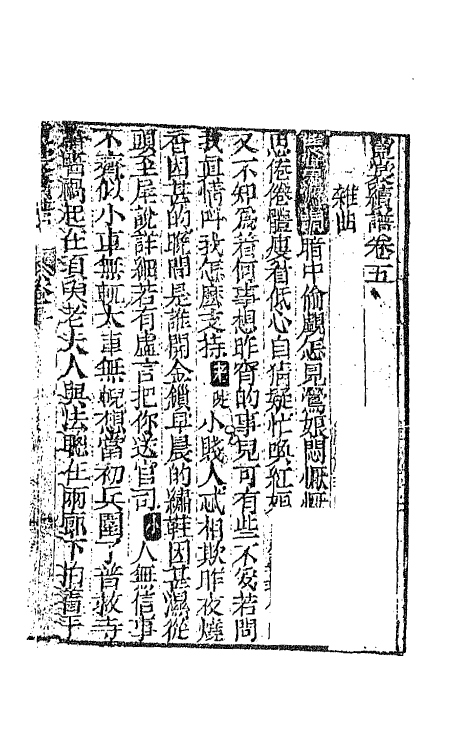 霓裳續譜卷五
雜曲
暗中偷覷怎見鶯娘悶懨懨
思倦倦體瘦眉低心自猜疑忙喚紅娘
又不知爲着何事想昨宵的事兒可有些不妥若問
我真情呌我怎麼支持老旦小賤人忒相欺昨夜燒
香因甚的聽聞是誰開金鎖早晨的繡鞋因甚濕從
頭至尾說詳細若有虛言把你送官司小人無信事
不齊似小車無軏大車無輗想當初兵圍了普救寺
牆禍起在須臾老夫人與法聰在兩廊下拍着手